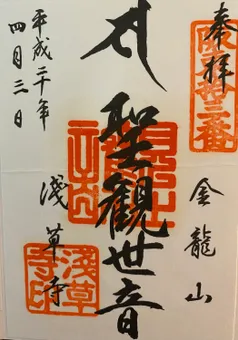 奉拝
坂東拾三番
金龍山
聖観世音
淺草寺
淺草寺印
平成二十年
四月三日